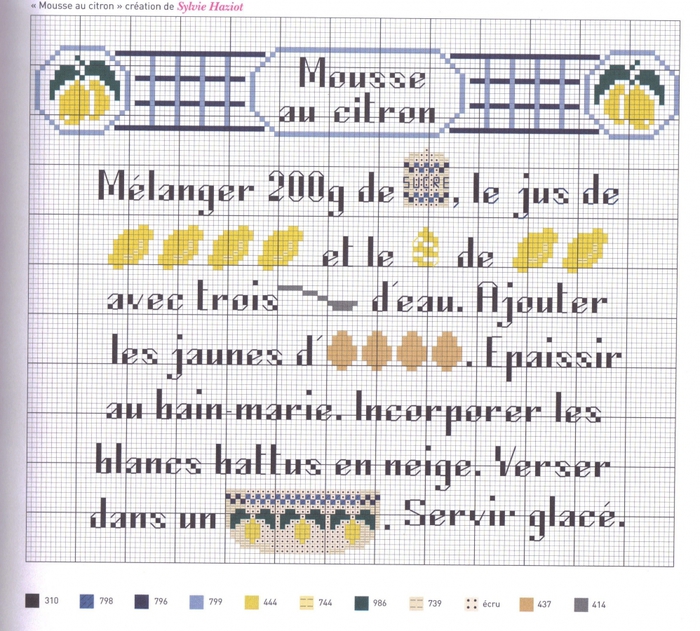 « Mousse au citron » création de Sylvie Haziot
Mousse
au citron
Mélanger 200g de SUCRE, le jus de
et le de
avec trois d'eau. Ajouter
les jaunes d' . Epaissir
au bain-marie. Incorporer les
blancs battus en neige. Verser
dans un . Servir glacé.
310 798 796 799 444 744 986 739 écru 437 414